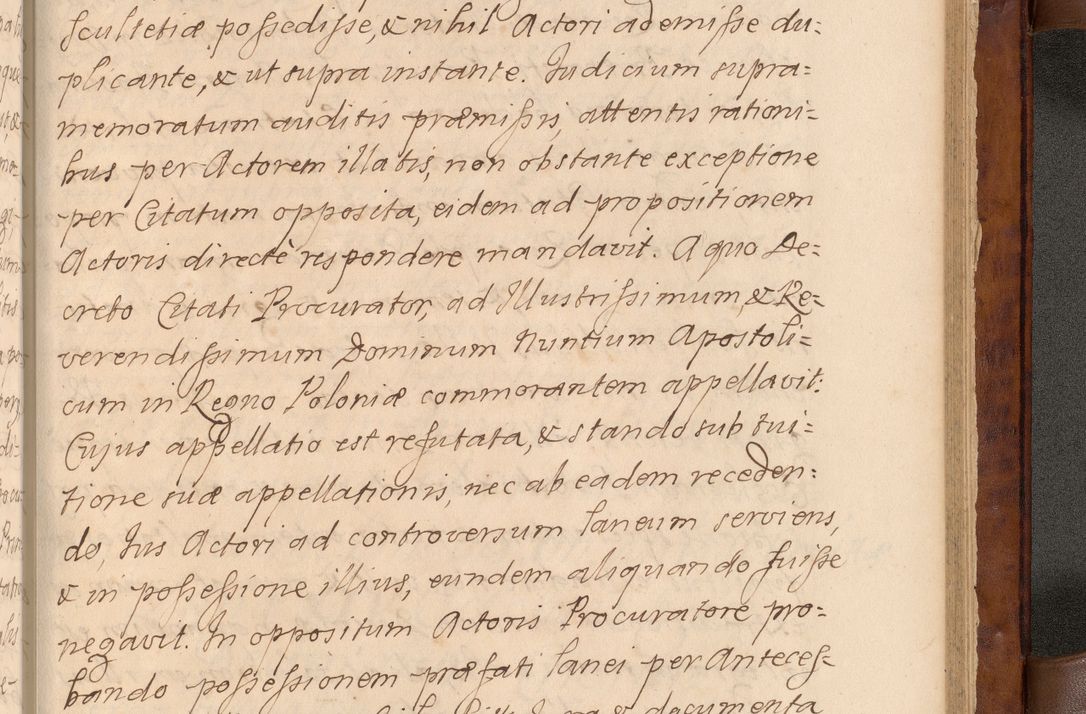 scultetiæ possedisse, & nihil Actori ademisse du=
plicante, & ut supra instante. Judicium supra=
memoratum auditis præmissis, attentis rationi=
bus per Actorem illatis, non obstante exceptione
per Citatum opposita, eidem ad propositionem
Actoris directè respondere mandavit. A quo De=
creto Citati Procurator, ad Illustrissimum, & Re=
verendissimum Dominum Nuntium Apostoli=
cum in Regno Poloniæ commorantem appellavit:
Cujus appellatio est refutata, & stando sub tui=
tione suæ appellationis, nec ab eadem receden=
do, Jus Actori ad controversum laneum serviens,
& in possessione illius, eundem aliquando fuisse
negavit. In oppositum Actoris Procuratore pro=
bando possessionem præfati lanei per Anteces=
documenta